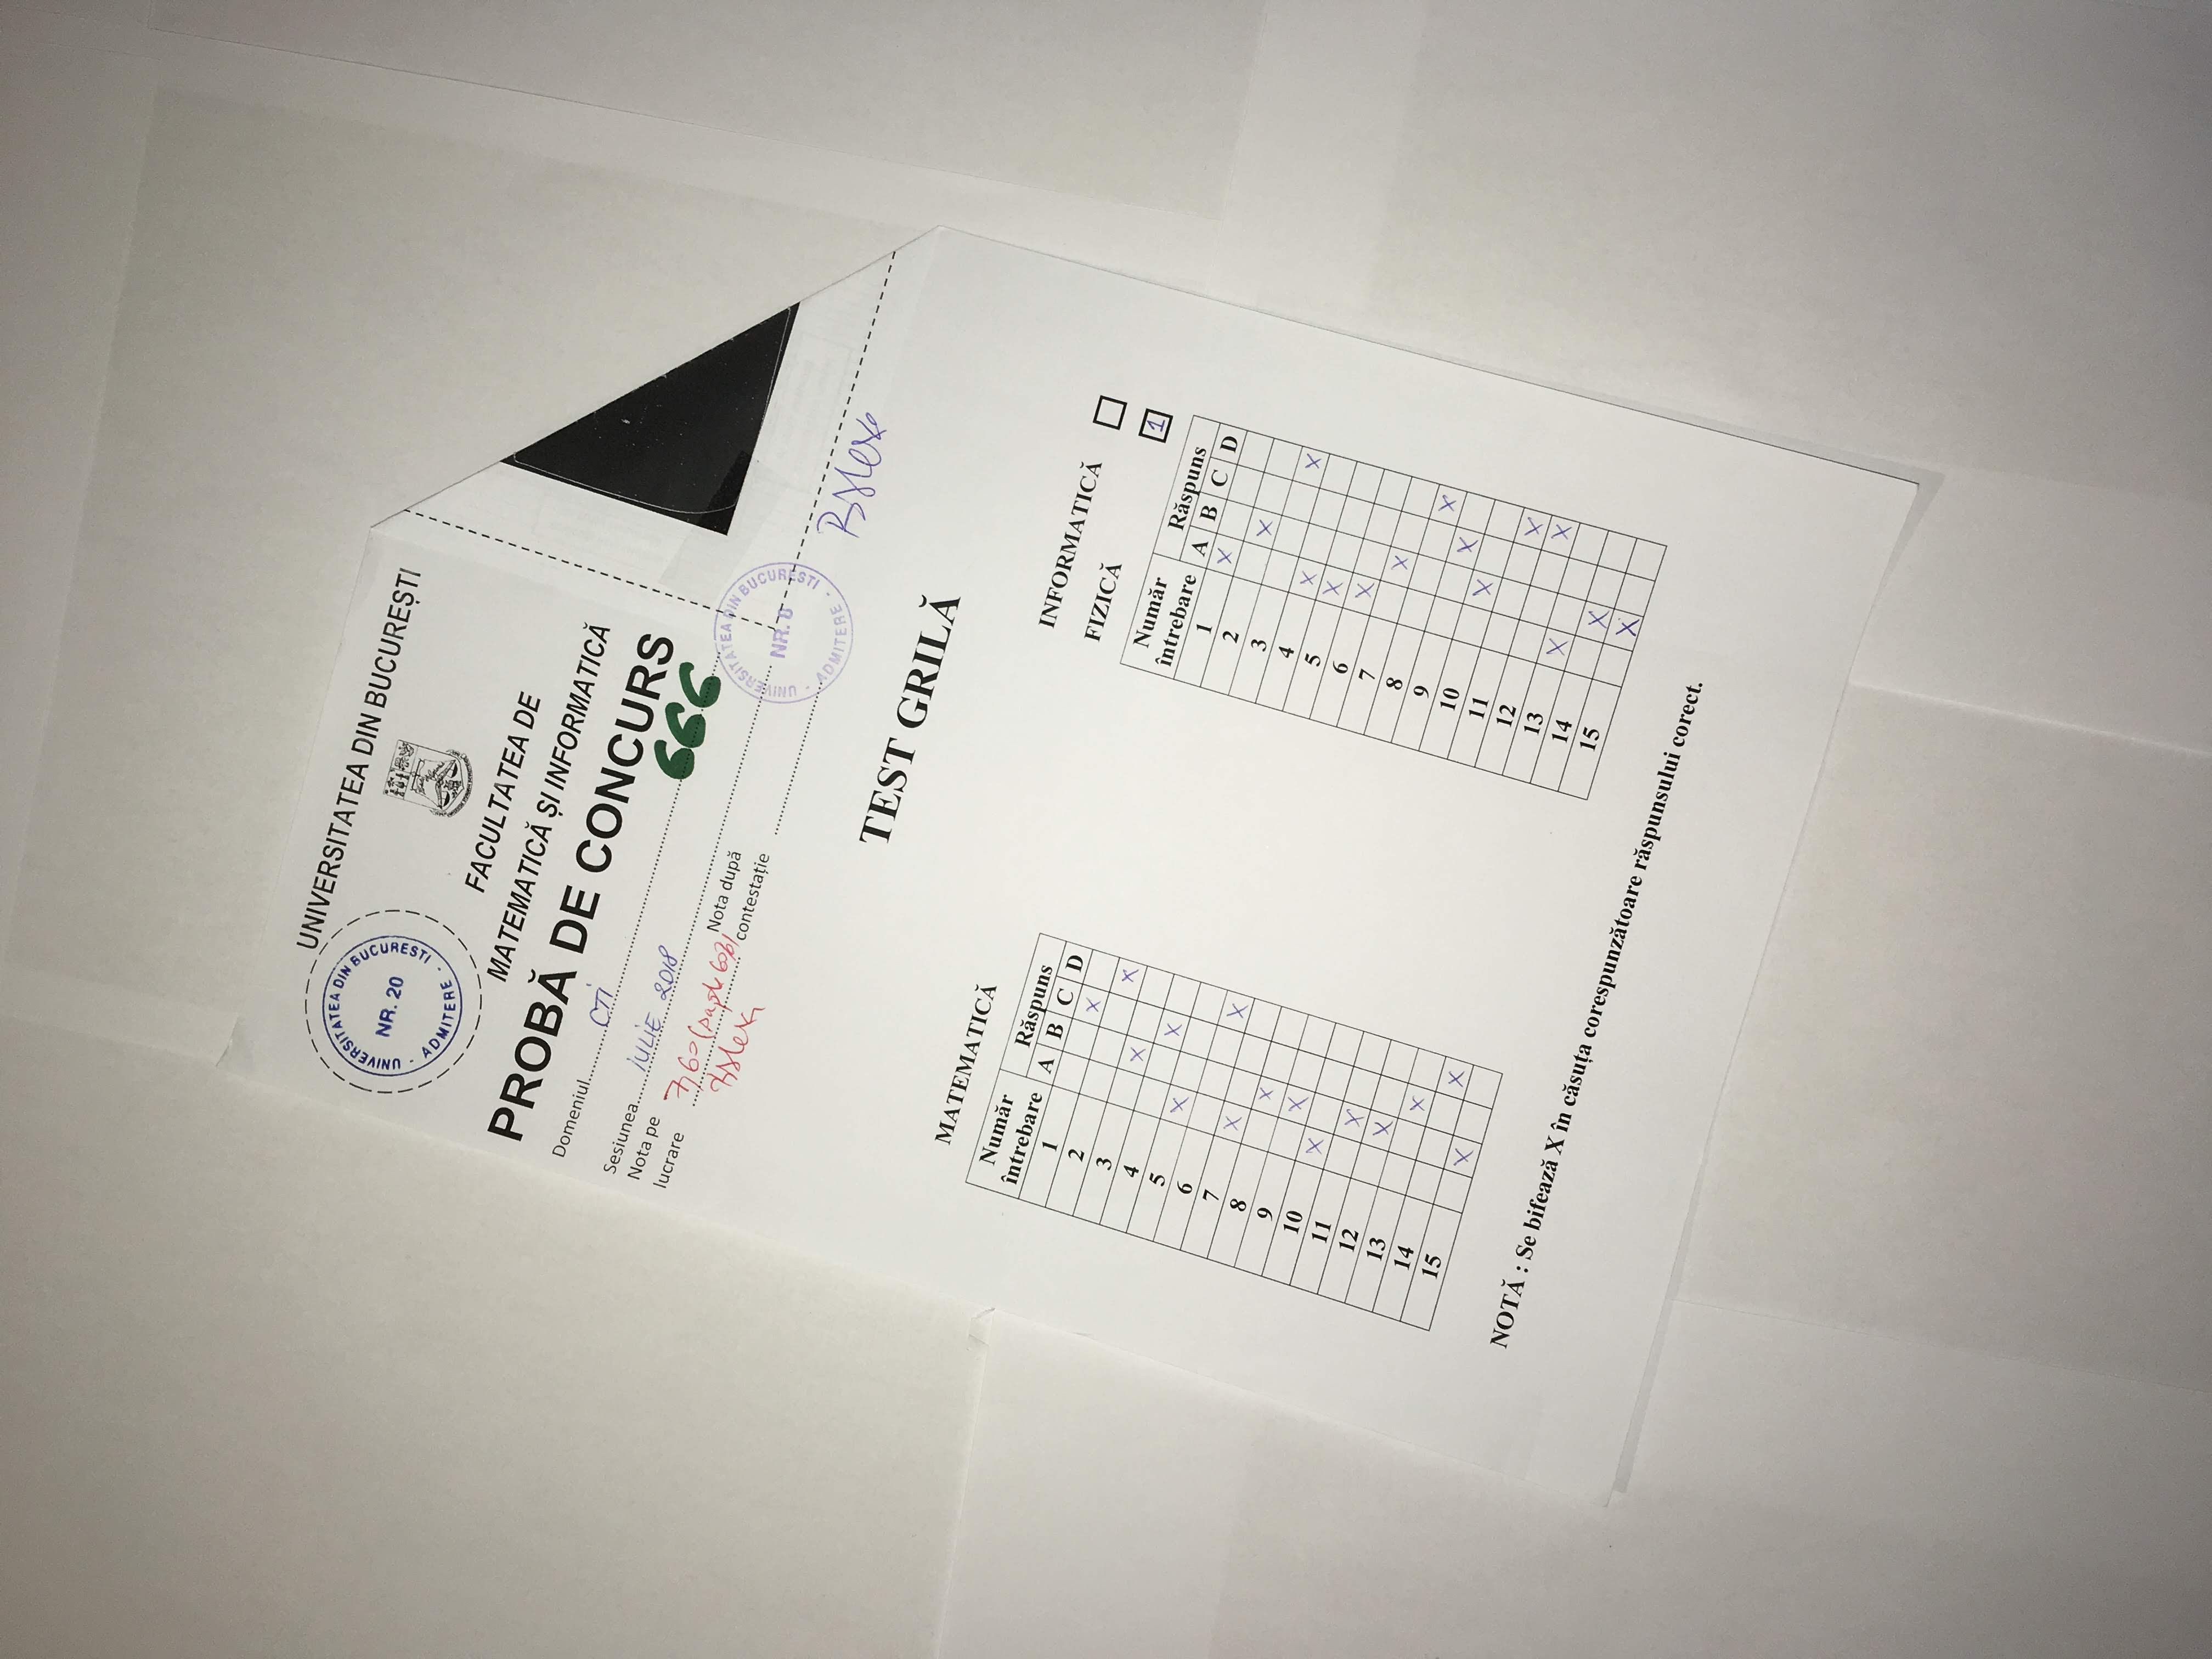 UNIVERSITATEA DIN BUCUREȘTI
UNIVERSITATEA DIN BUCURESTI
NR. 20
- ADMITERE -
FACULTATEA DE
MATEMATICĂ ȘI INFORMATICĂ
PROBĂ DE CONCURS
Domeniul CTI
666
Sesiunea IULIE 2018
Nota pe lucrare 7,60
Nota după contestație
UNIVERSITATEA DIN BUCURESTI
NR. 8
- ADMITERE -
TEST GRILĂ
MATEMATICĂ
Număr întrebare Răspuns
A B C D
1 X
2 X
3 X
4 X
5 X
6 X
7 X
8 X
9 X
10 X
11 X
12 X
13 X
14 X
15 X
INFORMATICĂ
FIZICĂ 1
Număr întrebare Răspuns
A B C D
1 X
2 X
3 X
4 X
5 X
6 X
7 X
8 X
9 X
10 X
11 X
12 X
13 X
14 X
15 X
NOTĂ : Se bifează X în căsuța corespunzătoare răspunsului corect.